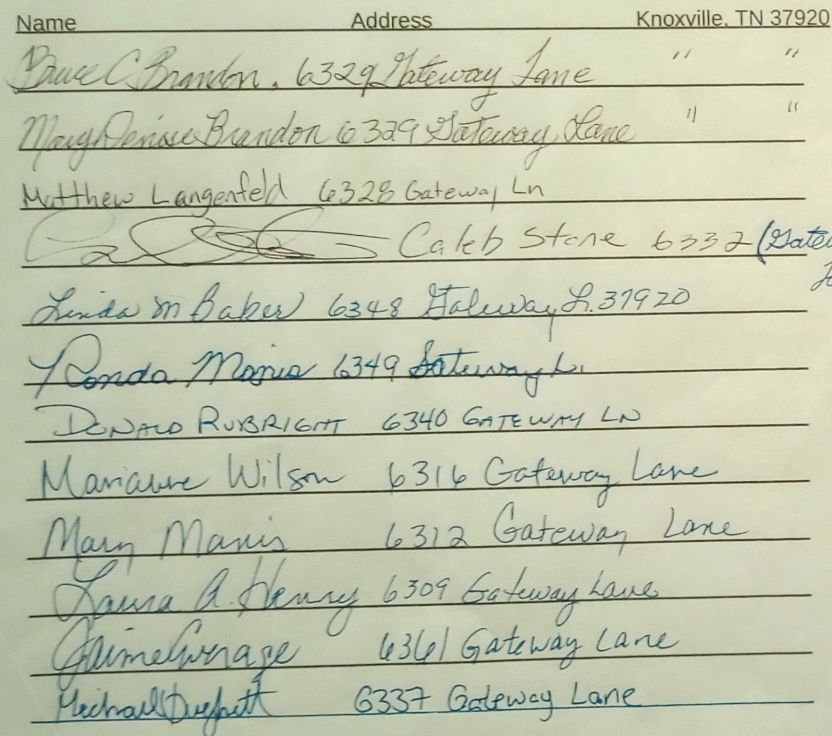 Name Address Knoxville, TN 37920
Bruce C. Brandon. 6329 Gateway Lane " "
Mary Denise Brandon 6329 Gateway Lane " "
Matthew Langenfeld 6328 Gateway Ln
Caleb Stone 6332 (Gatew
Linda M Baker 6348 Gateway L. 37920
Ronda Manis 6349 Gateway L.
DONALD RUBRIGHT 6340 GATEWAY LN
Wilson 6316 Gateway Lane
Mary Manis 6312 Gateway Lane
Laura A. Henry 6309 Gateway Lane
Jaime 6361 Gateway Lane
Michael 6337 Gateway Lane